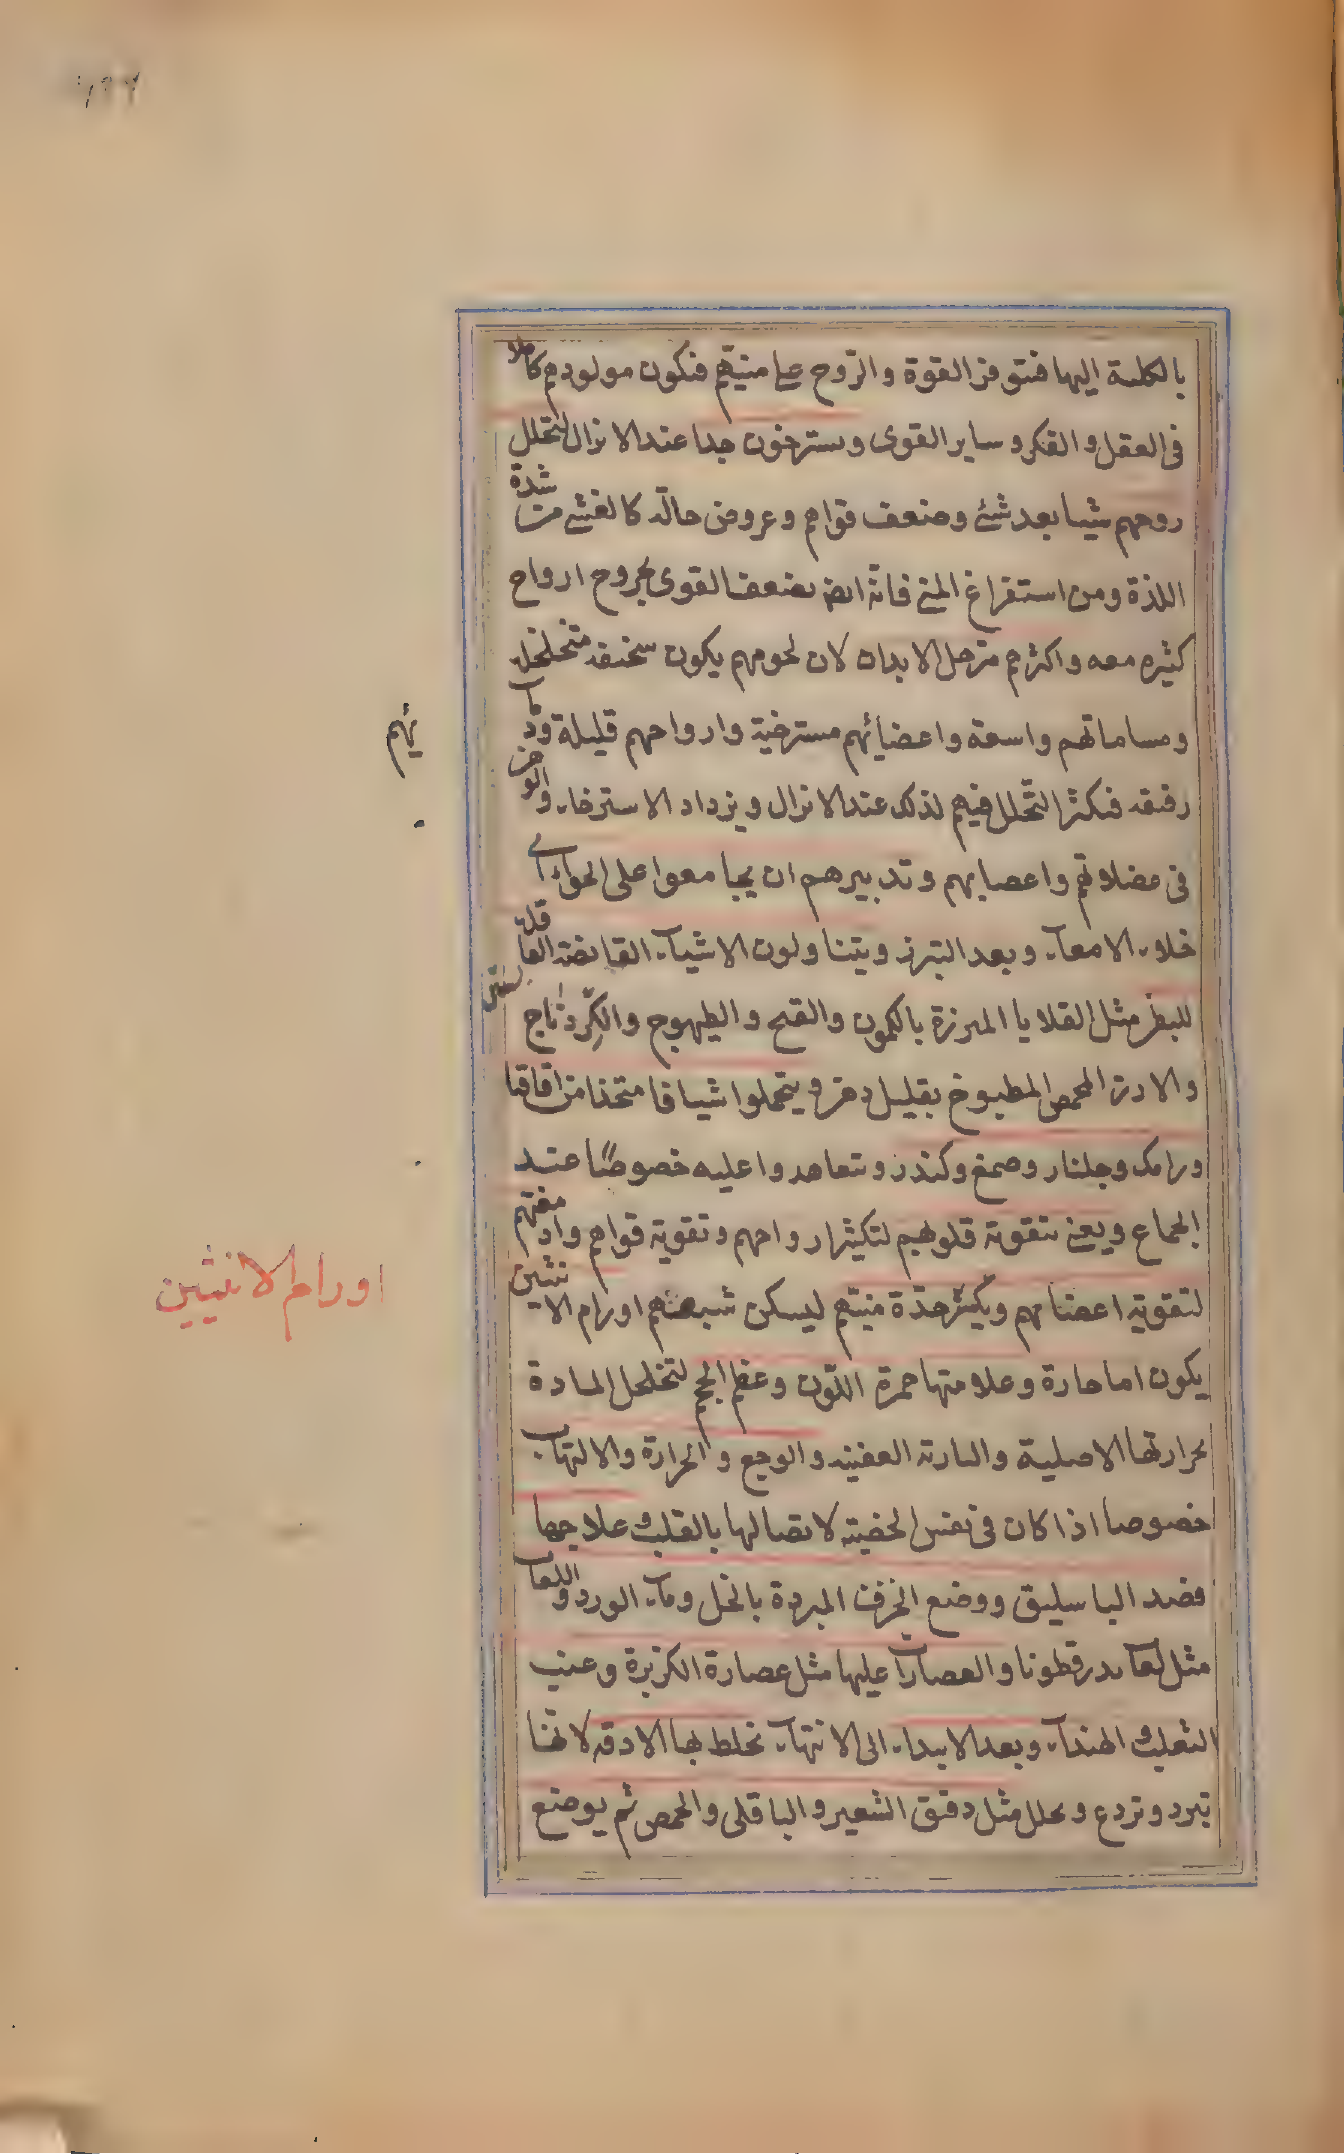 بالكلية اليها فتتوفر القوة والروح على منيهم فتكون مولودهم كاملا
فى العقل والفكر وساير القوى ويسترخون جدا عند الانزال لتحلل
روحهم شيئا بعد شئ وضعف قواهم وعروض حالة كالغشى من شدة
اللذة ومن استفراغ المنى فانه ايضا يضعف القوى بخروج ارواح
كثيره معه واكثرهم مترهل الابدان لان لحومهم يكون سخيفه متخلخل
ومساماتهم واسعة واعضائهم مسترخية وارواحهم قليلة ودمائهم
رقيقه فيكثر التحلل فيهم لذلك عند الانزال ويزداد الاسترخاء والوهن
فى عضلاتهم واعصابهم وتدبيرهم ان يجامعوا على الخواء اى
خلاء الامعاء وبعد التبرز ويتناولون الاشياء القابضة العاقلة
للبطن مثل القلايا المبرزة بالكمون والقبج والطيهوج والكردناج
والارز المحمص المطبوخ بقليل دهن ويتحملوا شيافا متخذا من اقاقيا
ورامك وجلنار وصمغ وكندر ويتعاهدوا عليه خصوصًا عند
الجماع ويعنى بتقوية قلوبهم لتكثير ارواحهم وتقوية قواهم وادمغتهم
لتقوية اعصابهم ويكسر حدة منيهم ليسكن شبقهم اورام الانثيين
يكون اما حارة وعلامتها حمرة اللون وعظم الحجم لتخلخل المادة
بحرارتها الاصلية والنارية العفنية والوجع والحرارة والالتهاب
خصوصا اذا كان فى نفس الخصية لاتصالها بالقلب علاجها
فصد الباسليق ووضع الخرق المبردة بالخل وماء الورد واللعاب
مثل لعاب بزرقطونا والعصارات عليها مثل عصارة الكزبرة وعنب
الثعلب والهندباء وبعد الابتداء الى الانتهاء تخلط بها الادقه لانها
تبرد وتردع وتحلل مثل دقيق الشعير والباقلى والحمص ثم يوضع
ئهم
اورام الانثيين